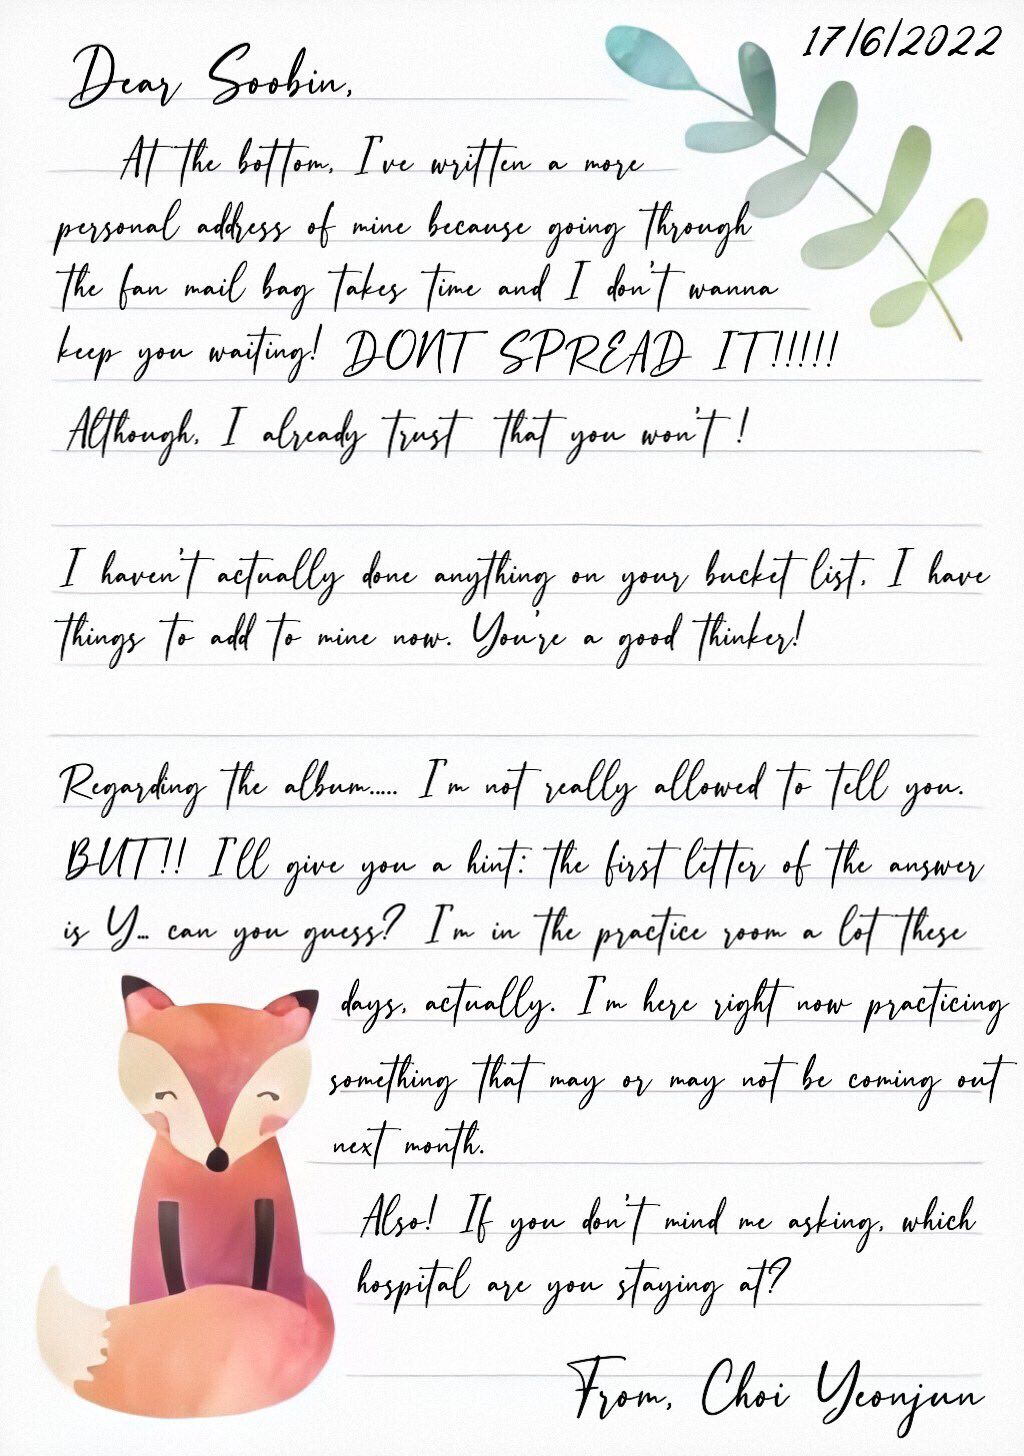 17/6/2022
Dear Soobin,
At the bottom, I've written a more
personal address of mine because going through
the fan mail bag takes time and I don't wanna
keep you waiting! DONT SPREAD IT!!!!!
Although, I already trust that you won't!
I haven't actually done anything on your bucket list, I have
things to add to mine now. You're a good thinker!
Regarding the album..... I'm not really allowed to tell you.
BUT!! I'll give you a hint: the first letter of the answer
is Y... can you guess? I'm in the practice room a lot these
days, actually. I'm here right now practicing
something that may or may not be coming out
next month.
Also! If you don't mind me asking, which
hospital are you staying at?
From, Choi Yeonjun